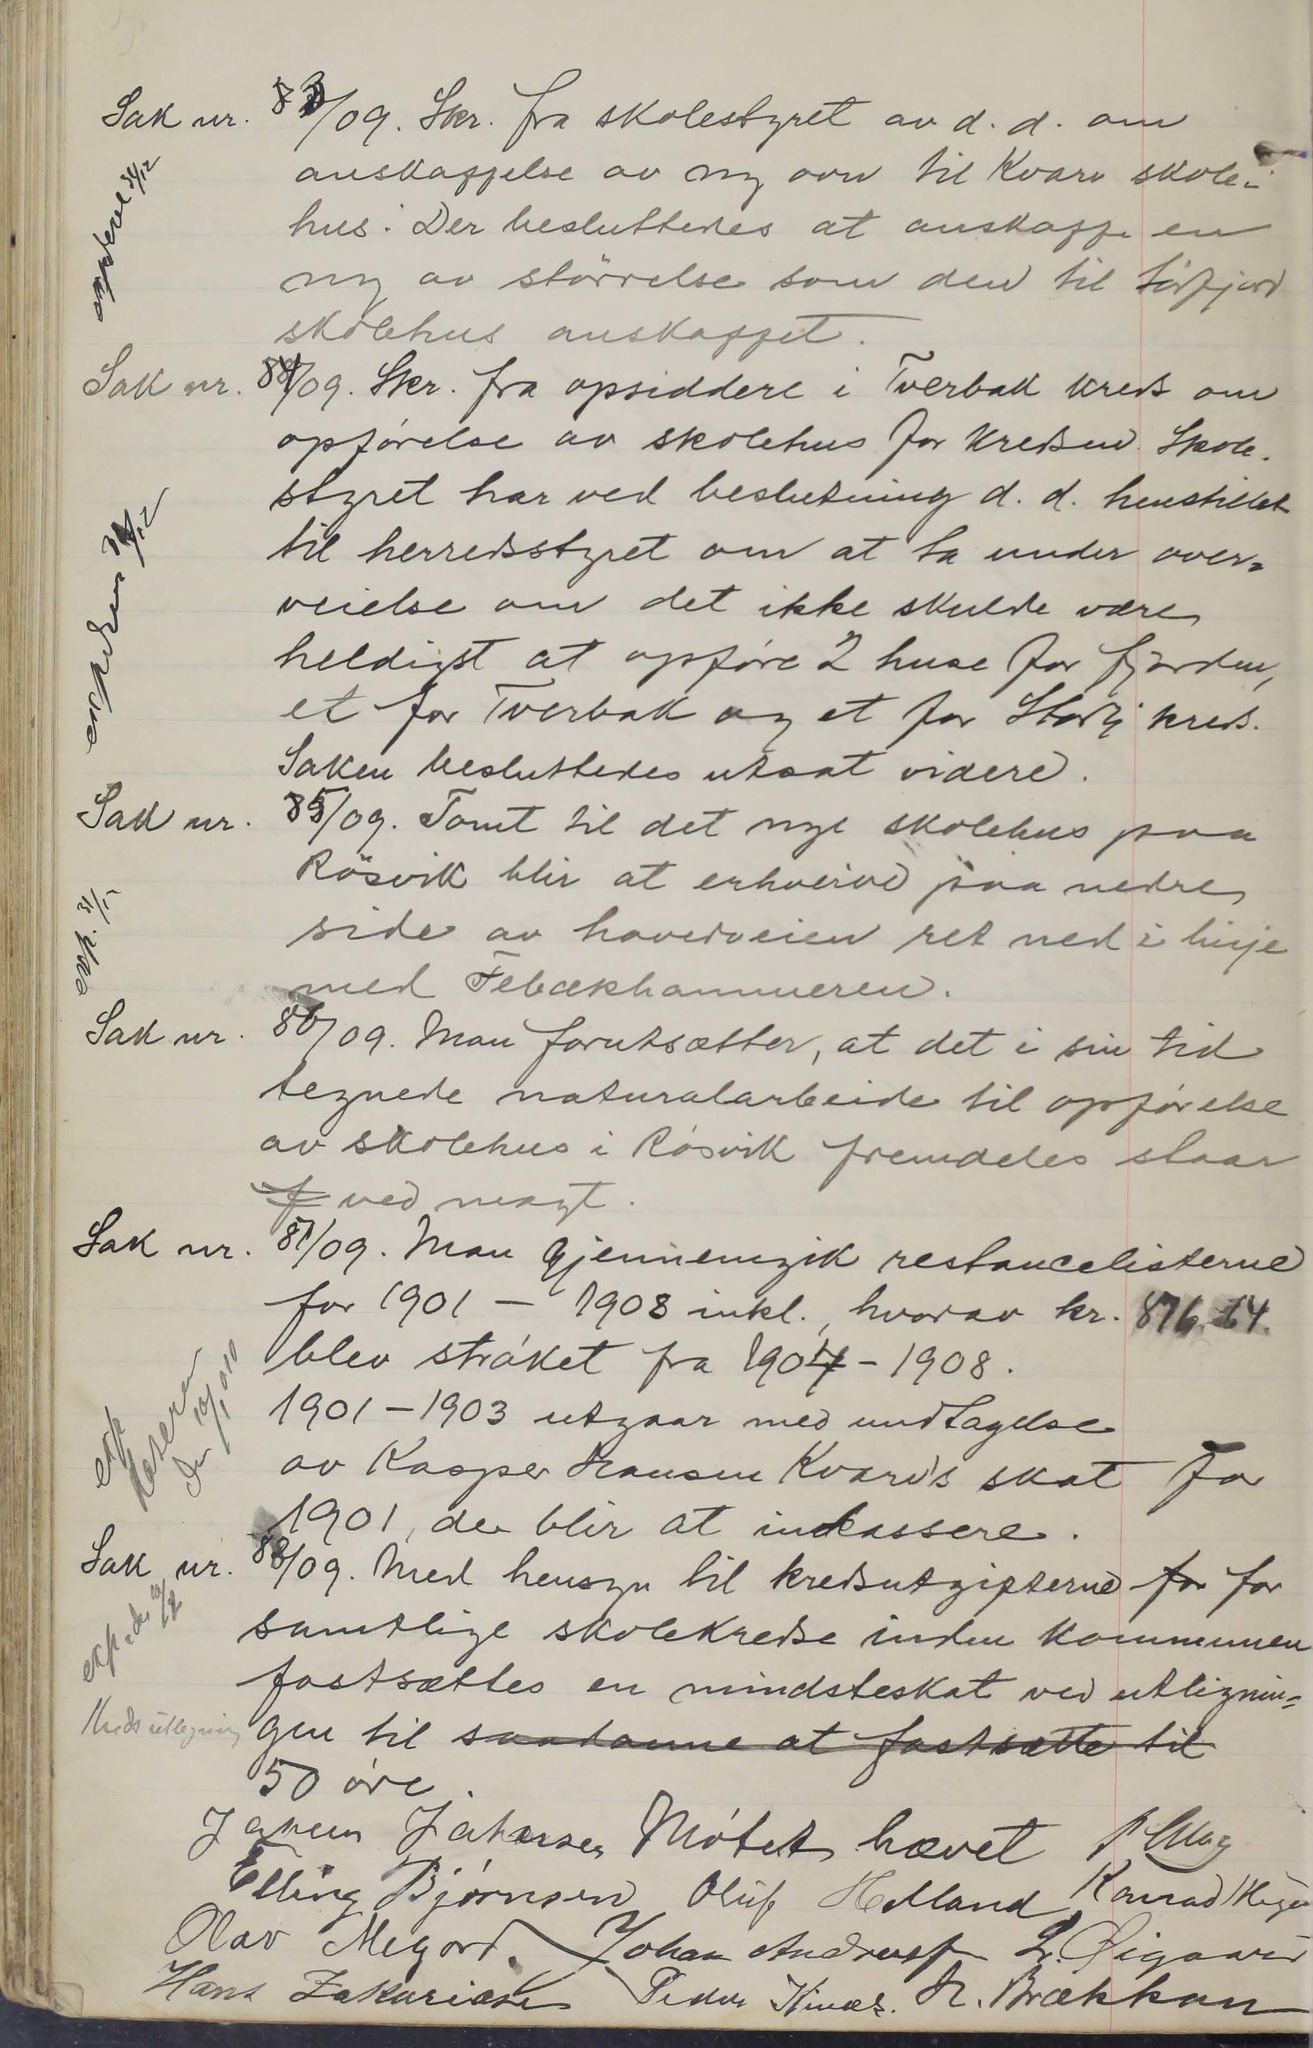 Sak nr. 83/09. Skr. fra skolestyret av d. d. om
anskaffelse av ny ovn til Kvarv skole-
hus. Der besluttedes at anskaffe en
ny av störrelse som den til Törfjord
skolehus anskaffet.
Sak nr. 84/09. Skr. fra opsiddere i Tverbak kreds om
opförelse av skolehus for kredsen. Skole-
styret har ved beslutning d. d. henstillet
til herredsstyret om at ta under over-
veielse om det ikke skulde være
heldigst at opföre 2 huse for fjorden,
et for Tverbak og et for Storfj kreds.
Saken besluttedes utsat videre.
Sak nr. 85/09. Tomt til det nye skolehus paa
Rösvik blir at erhverve paa nedre
side av hovedveien ret ned i linje
med Febækhammeren.
Sak nr. 86/09. Man forutsætter, at det i sin tid
tegnede naturalarbeide til opförelse
av skolehus i Rösvik fremdeles staar
f ved magt.
Sak nr. 87/09. Man gjennemgik restancelisterne
for 1901 – 1908 inkl., hvorav kr. 876.14
blev ströket fra 1904 – 1908.
1901 – 1903 utgaar med undtagelse
av Kasper Hansen Kvarvs skat for
1901, der blir at inkassere.
exp
Kasseren
den 10/1 010
Sak nr. 88/09. Med hensyn til kredsutgifterne for for
samtlige skolekredse inden kommunen
fastsættes en mindsteskat ved utlignin-
gen til saadanne at fastsætte til
50 öre.
Kredsutligning
Mötet hævet
Elling Björnsen Oluf Helland Konrad
Olav Megord. Johan
Hans Zakariasen Peder H. Brækkan